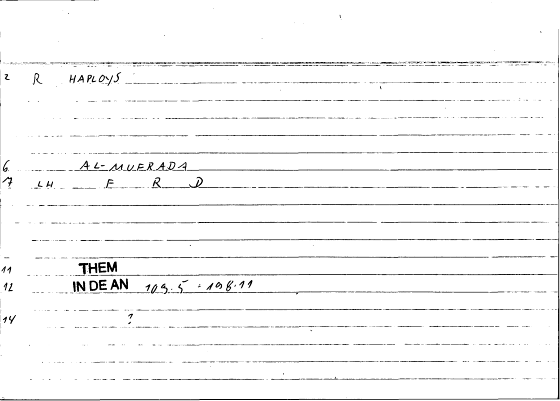 2 R HAPLOYS
6 AL-MUFRADA
7 LH F R D
11 THEM
12 IN DE AN 109.5 - 198.11
14 ?